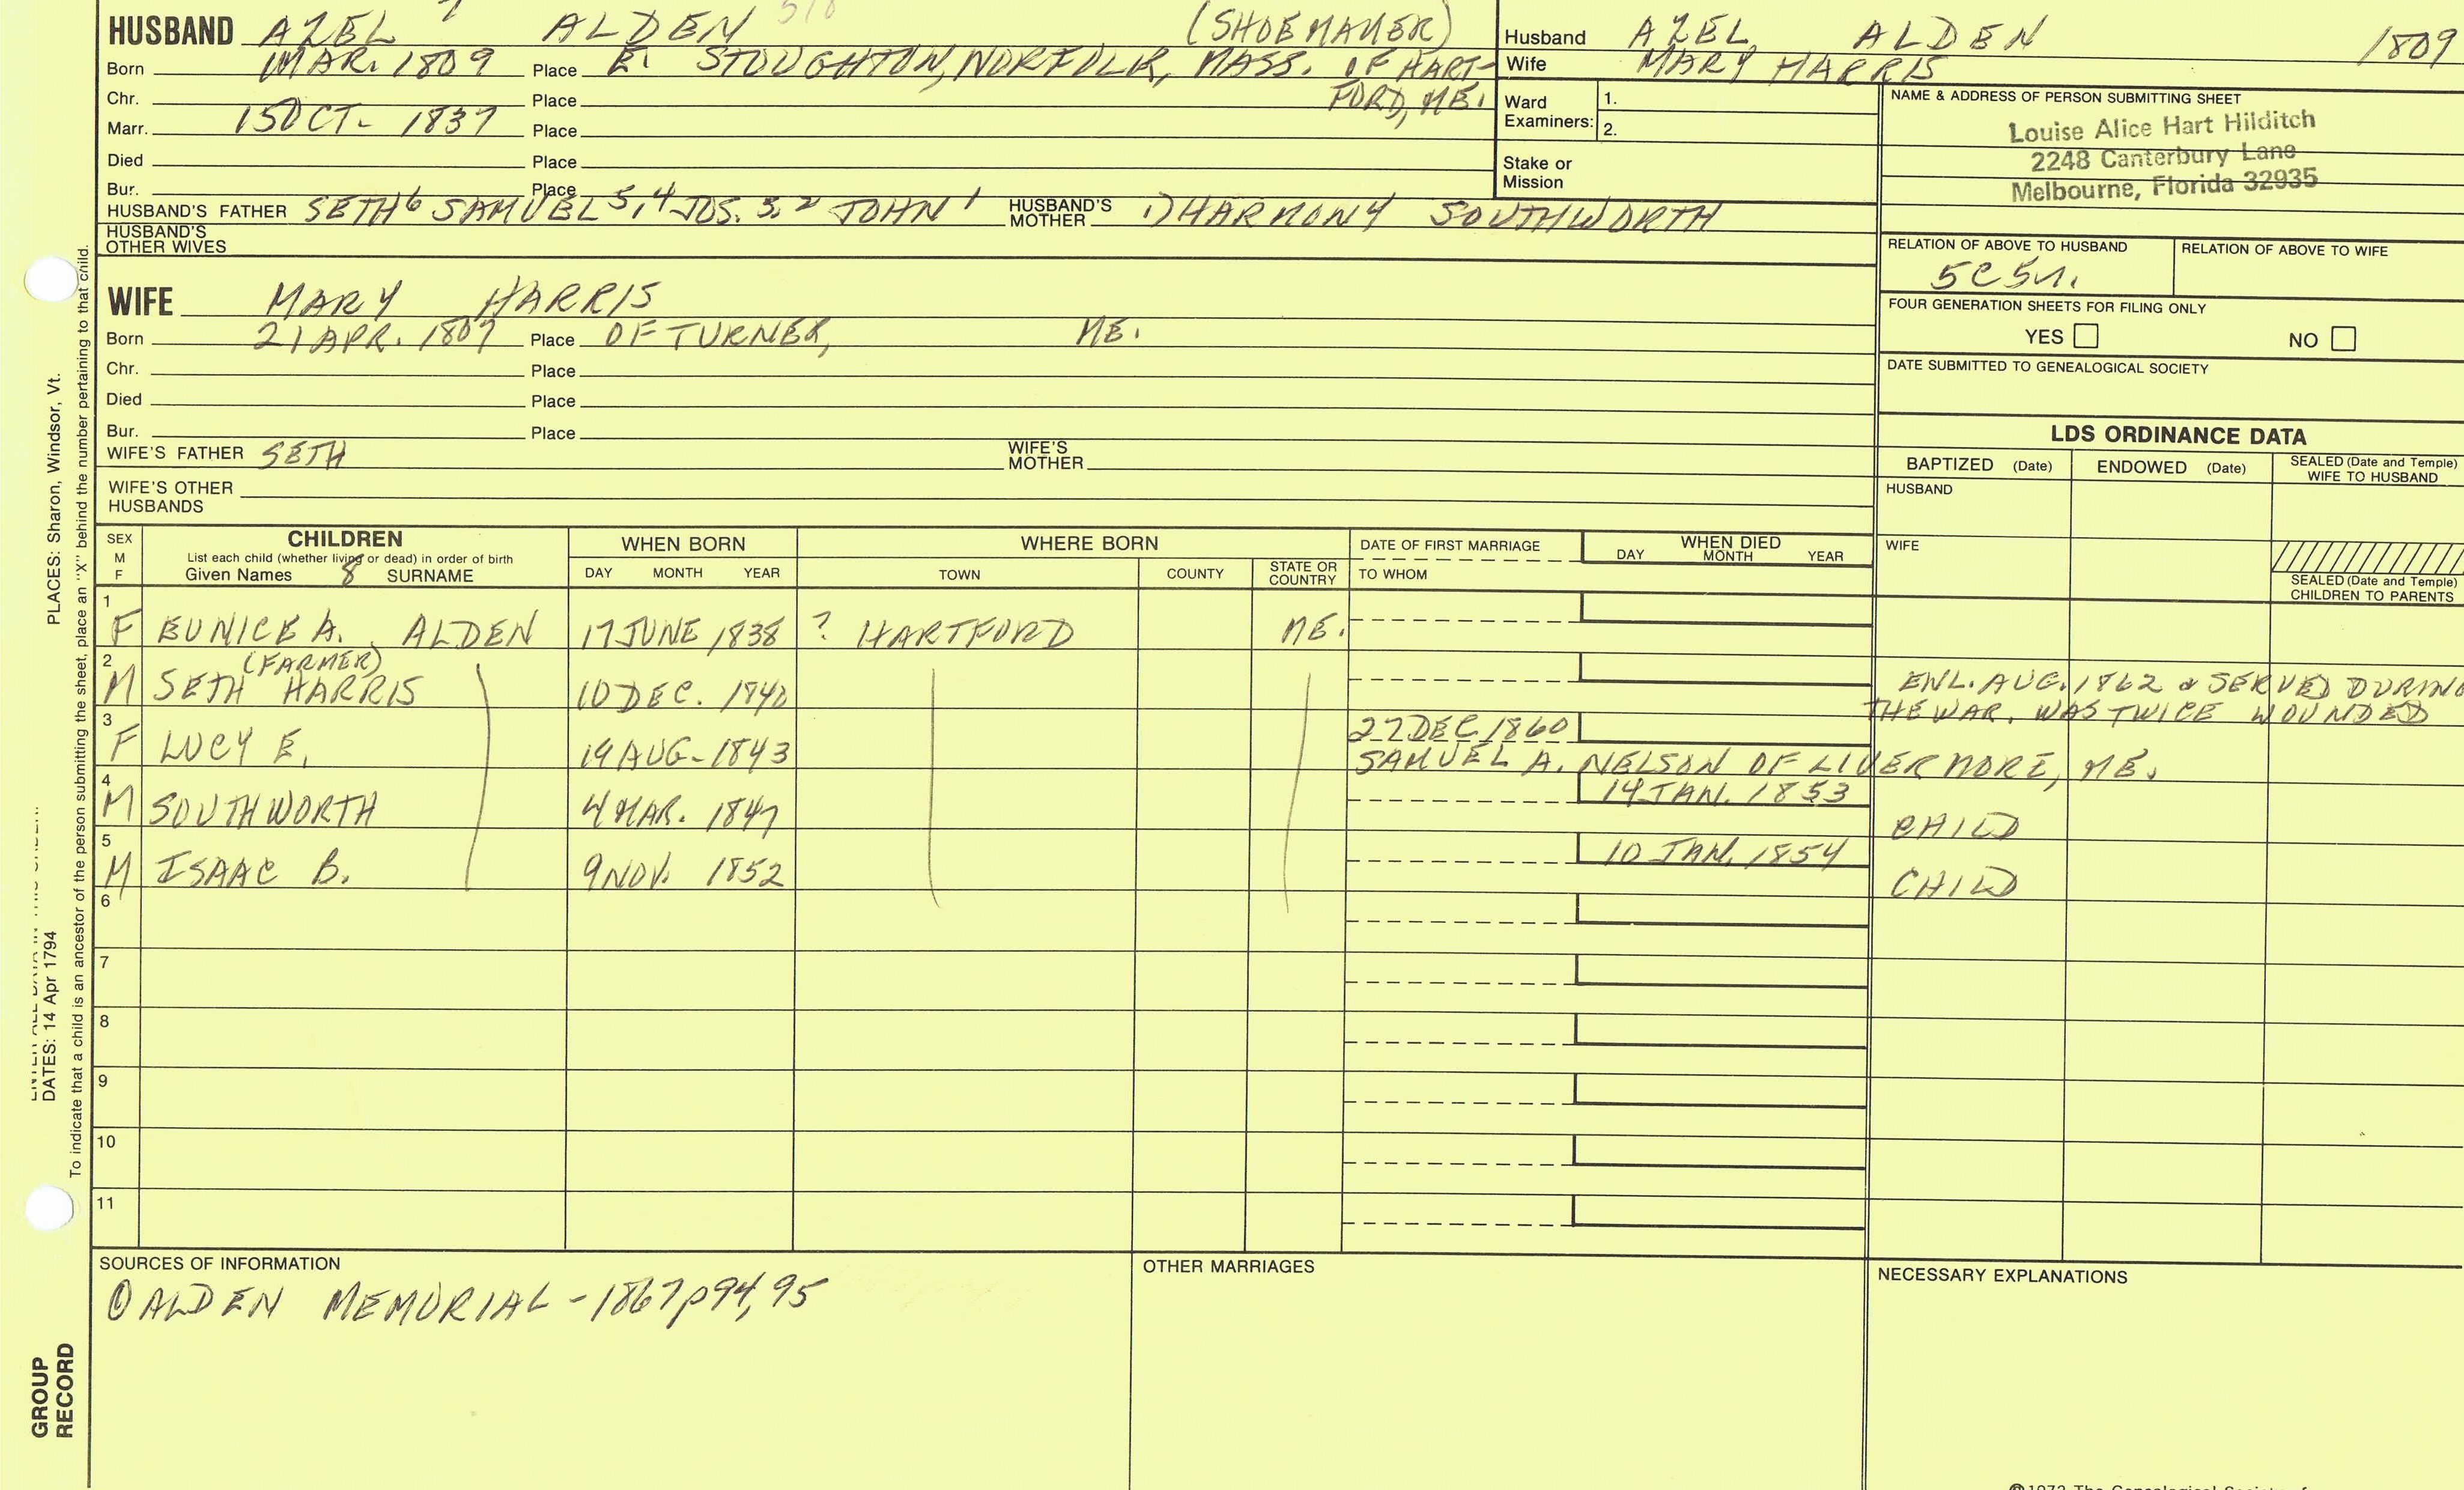 HUSBAND AZEL 7 ALDEN (SHOEMAKER)
Born MAR. 1809 Place E. STOUGHTON, NORFOLK, MASS. OF HART-
FORD, ME.
Chr. Place
Marr. 15 OCT- 1837 Place
Died Place
Bur. Place
HUSBAND'S FATHER SETH6 SAMUEL5,4 JOS. 3,2 JOHN1 HUSBAND'S MOTHER 1) HARMONY SOUTHWORTH
HUSBAND'S OTHER WIVES
Husband AZEL ALDEN 1809
Wife MARY HARRIS
Ward Examiners: 1.
2.
Stake or Mission
NAME & ADDRESS OF PERSON SUBMITTING SHEET
Louise Alice Hart Hilditch
2248 Canterbury Lane
Melbourne, Florida 32935
RELATION OF ABOVE TO HUSBAND RELATION OF ABOVE TO WIFE
5C5r.
FOUR GENERATION SHEETS FOR FILING ONLY
YES NO
DATE SUBMITTED TO GENEALOGICAL SOCIETY
WIFE MARY HARRIS
Born 21 APR. 1807 Place OF TURNER, ME.
Chr. Place
Died Place
Bur. Place
WIFE'S FATHER SETH WIFE'S MOTHER
WIFE'S OTHER HUSBANDS
LDS ORDINANCE DATA
BAPTIZED (Date) ENDOWED (Date) SEALED (Date and Temple) WIFE TO HUSBAND
HUSBAND
WIFE
SEALED (Date and Temple) CHILDREN TO PARENTS
SEX M F CHILDREN WHEN BORN WHERE BORN DATE OF FIRST MARRIAGE WHEN DIED
List each child (whether living or dead) in order of birth
Given Names 8 SURNAME DAY MONTH YEAR TOWN COUNTY STATE OR COUNTRY TO WHOM DAY MONTH YEAR
1 F EUNICE A. ALDEN 17 JUNE 1838 ? HARTFORD ME.
2 (FARMER)
M SETH HARRIS 10 DEC. 1840 ENL. AUG. 1862 & SERVED DURING
THE WAR. WAS TWICE WOUNDED
3 F LUCY E. 19 AUG- 1843 27 DEC 1860
SAMUEL A. NELSON OF LIVERMORE, ME.
4 M SOUTHWORTH 4 MAR. 1847 14 JAN. 1853 CHILD
5 M ISAAC B. 9 NOV. 1852 10 JAN. 1854 CHILD
6
7
8
9
10
11
SOURCES OF INFORMATION OTHER MARRIAGES NECESSARY EXPLANATIONS
① ALDEN MEMORIAL - 1867 p94,95
PLACES: Sharon, Windsor, Vt.
DATES: 14 Apr 1794
To indicate that a child is an ancestor of the person submitting the sheet, place an "X" behind the number pertaining to that child.
GROUP
RECORD